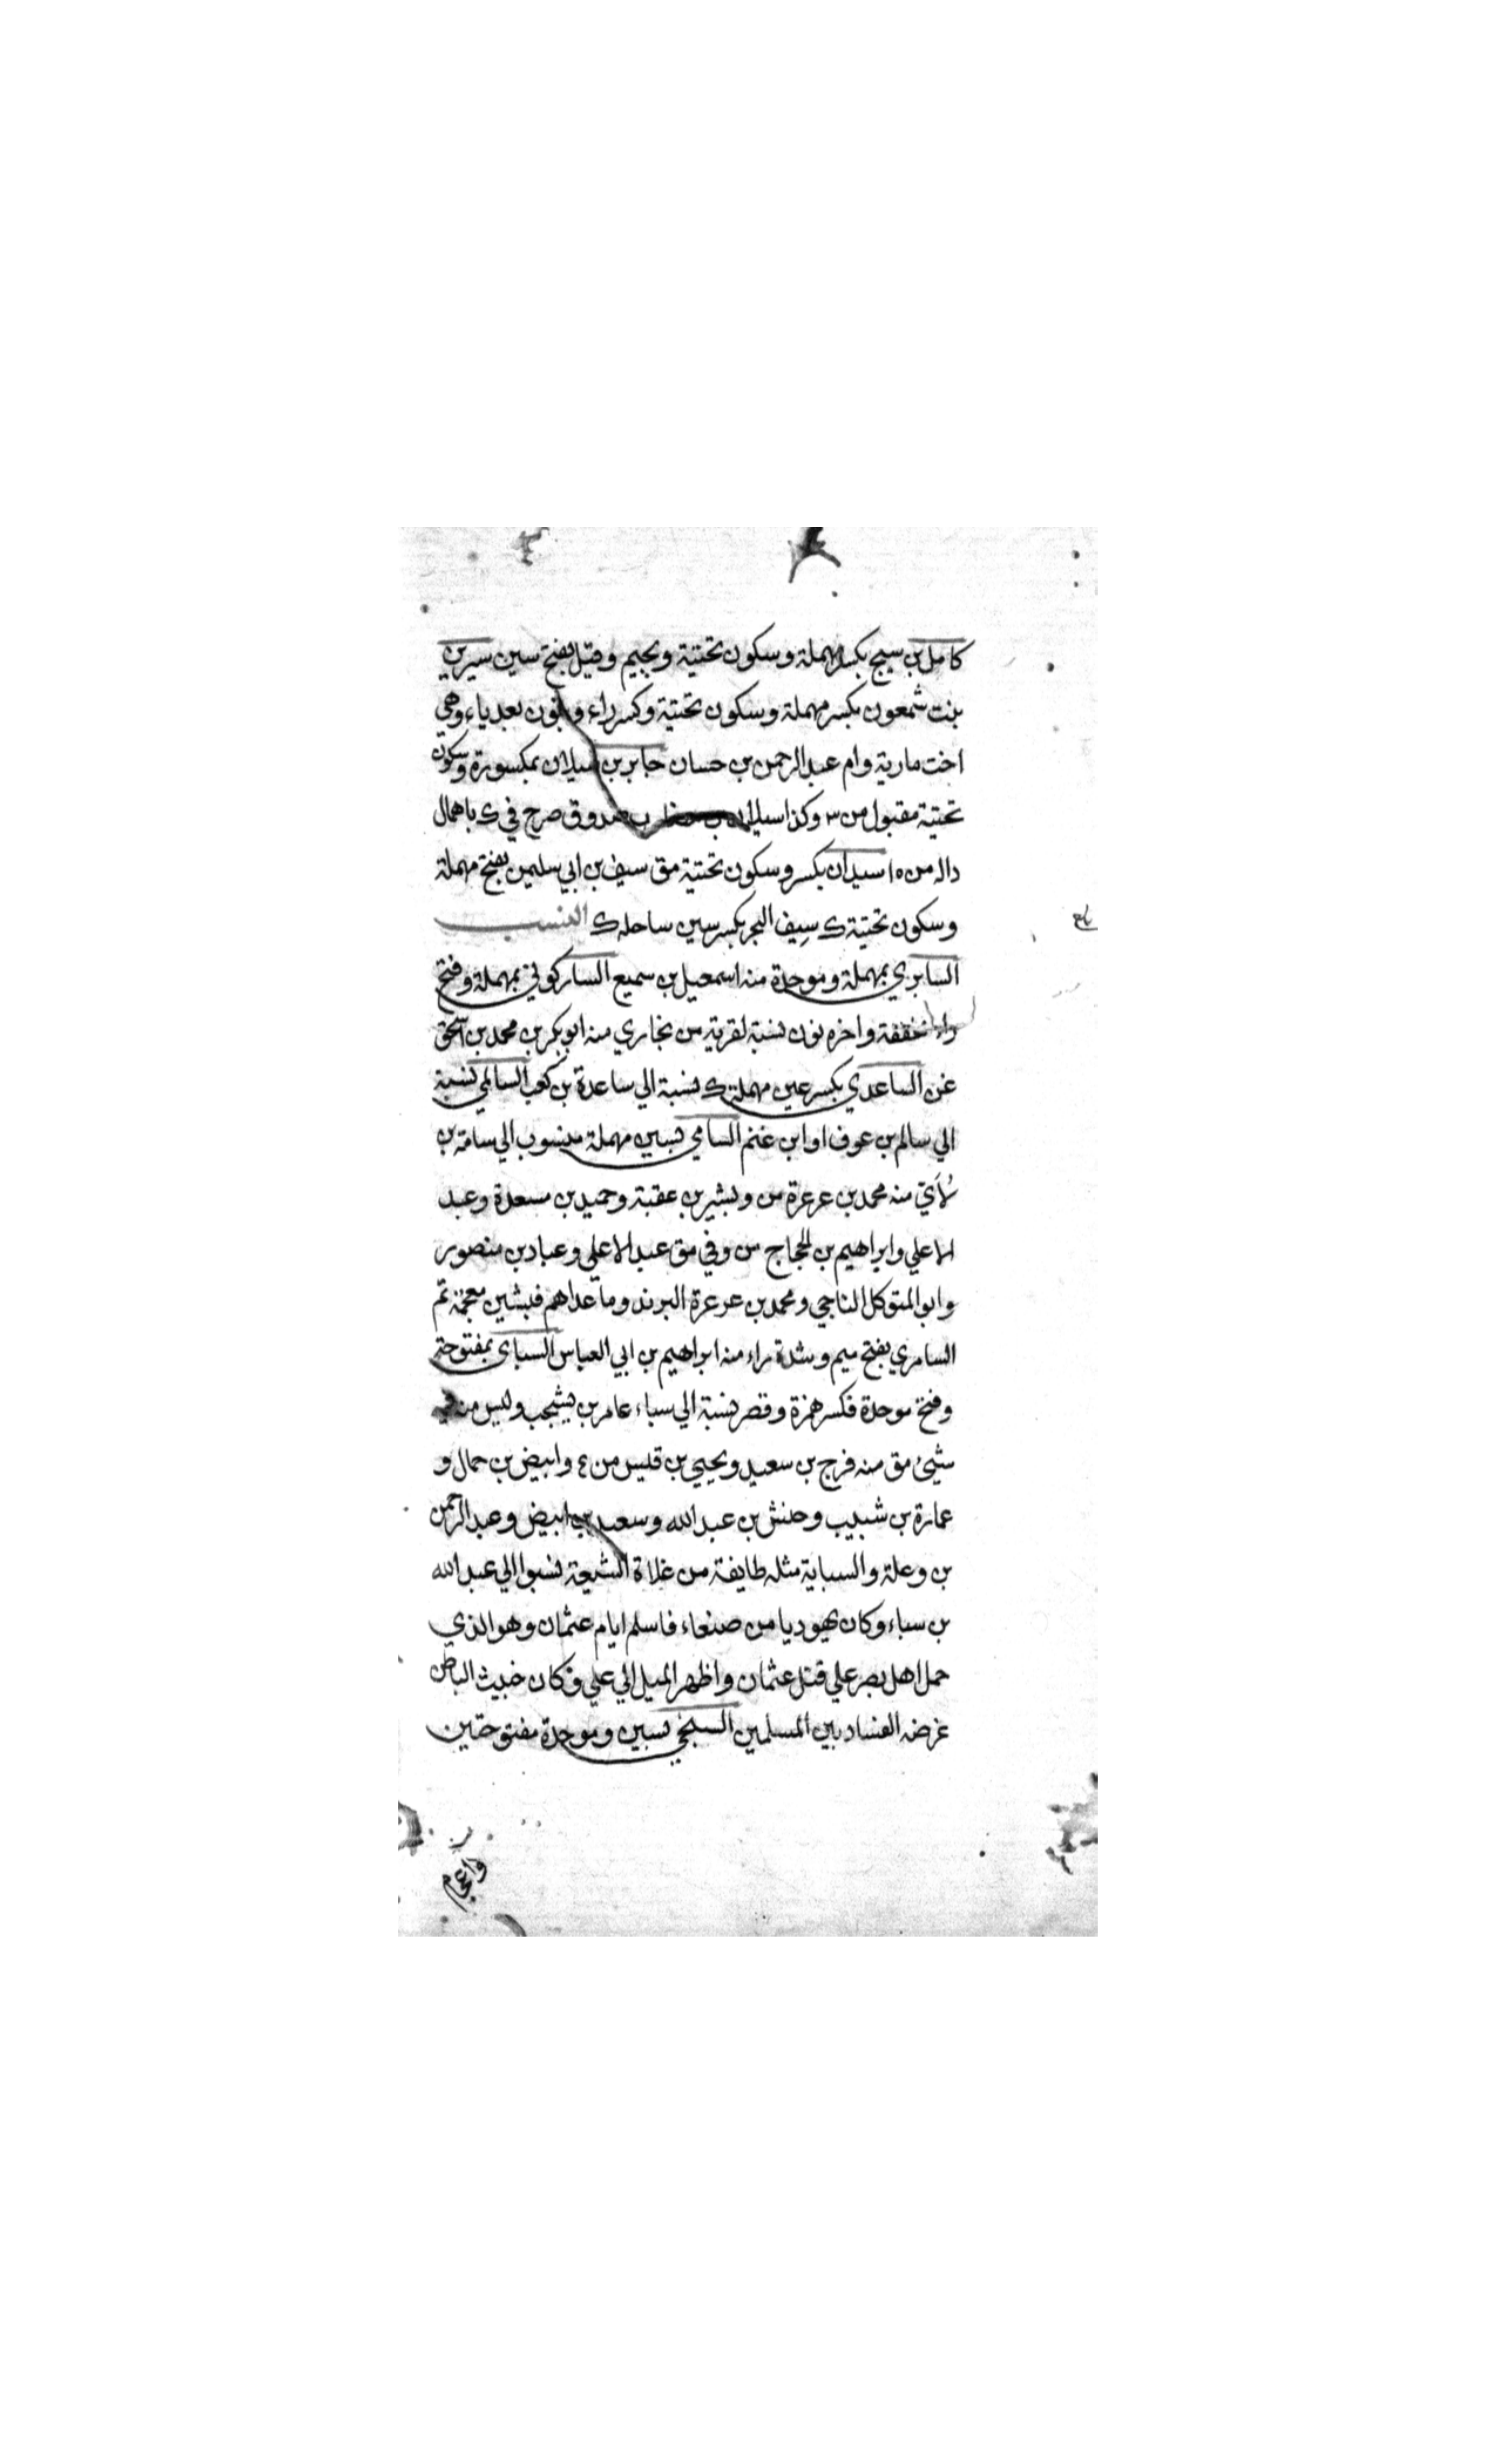 كامل بن سيج بكسر مهملة وسكون تحتية وبجيم وقيل بفتح سين سيرين
بنت شمعون بكسر مهملة وسكون تحتية وكسر راء وبنون بعد ياء وهي
اخت مارية وام عبد الرحمن بن حسان جابر بن سيلان بمكسورة وسكون
تحتية مقبول من ٣ وكذا سيلان صدوق صرح في ك باهمال
داله من ١٥ سيدان بكسر وسكون تحتية مق سيف بن ابي سليمن بفتح مهملة
وسكون تحتية ك سِيف البحر بكسر سين ساحله ك النسب
السابري بمهملة وموحدة منه اسمعيل بن سميع الساركوني بمهملة وفتح
راء مخففة واخره نون نسبة لقرية من بخاري منه ابو بكر بن محمد بن اسحق
غن الساعدي بكسر عين مهملة ك نسبة الي ساعدة بن كعب السالمي نسبة
الي سالم بن عوف او ابن غنم السامي بسين مهملة منسوب الي سامة بن
لُأَيّ منه محمد بن عرعرة س وبشير بن عقبة وحميد بن مسعدة وعبد
الاعلي وابراهيم بن الحجاج س وفي مق عبد الاعلي وعباد بن منصور
وابو المتوكل الناجي ومحمد بن عرعرة البرند وما عداهم فبشين معجمة تم
السامري بفتح ميم وشدة راء منه ابراهيم بن ابي العباس السباي بمفتوحة
وفتح موحدة فكسر همزة وقصر نسبة الي سباء عامر بن يشجب وليس من
شيئ مق منه فرج بن سعيد ويحيي بن قيس من ٤ وابيض بن حمال و
عمارة بن شبيب وحنش بن عبد الله وسعيد بن ابيض وعبد الرحمن
بن وعلة والسباية مثله طايفة من غلاة الشيعة نسبوا الي عبد الله
بن سباء وكان يهوديا من صنعاء فاسلم ايام عثمان وهو الذي
حمل اهل بصر علي قتل عثمان واظهر الميل الي علي وكان خبيث الباطن
غرضه الفساد بين المسلمين السبخي بسين وموحدة مفتوحتين
واعجام